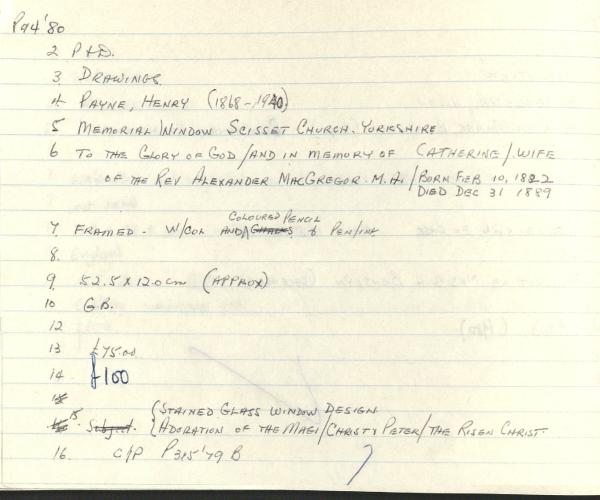 P94'80
2 P+D.
3 DRAWINGS.
4 PAYNE, HENRY (1868-1940)
5 MEMORIAL WINDOW SCISSET CHURCH. YORKSHIRE
6 TO THE GLORY OF GOD/AND IN MEMORY OF CATHERINE/.WIFE
OF THE REV ALEXANDER MACGREGOR. M.A./BORN FEB 10, 1822
DIED DEC 31 1889
COLOURED PENCIL
7. FRAMED - W/COL AND CHALKS & PEN/INK
8.
9. 52.5 x 12.0 cm (APPROX)
10 G.B.
12
13 £75.00
14 £100
15
STAINED GLASS WINDOW DESIGN
15. Subject. ADORATION OF THE MAGI/CHRIST+PETER/THE RISEN CHRIST.
16. C/P P315'79 B